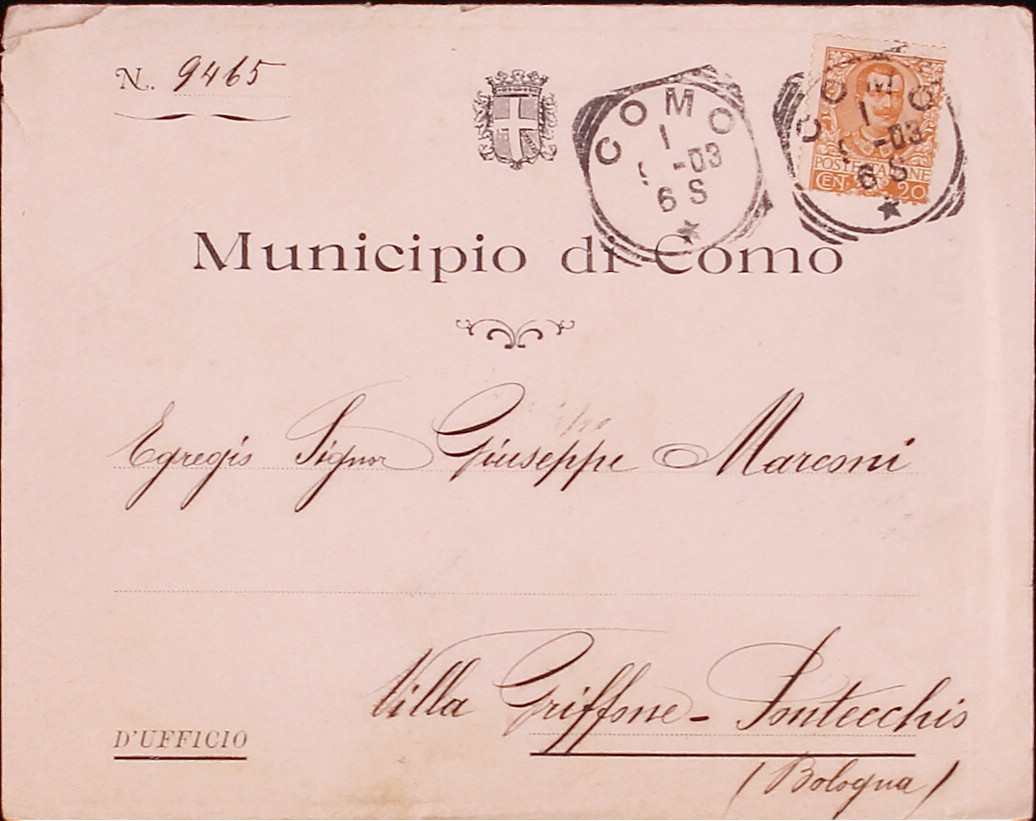 N. 9465
COMO
1
9 -03
6 S
COMO
1
9 -03
6 S
POSTE ITALIANE
CEN. 20
Municipio di Como
Egregio Signor Giuseppe Marconi
Villa Griffone - Pontecchio
D'UFFICIO
(Bologna)